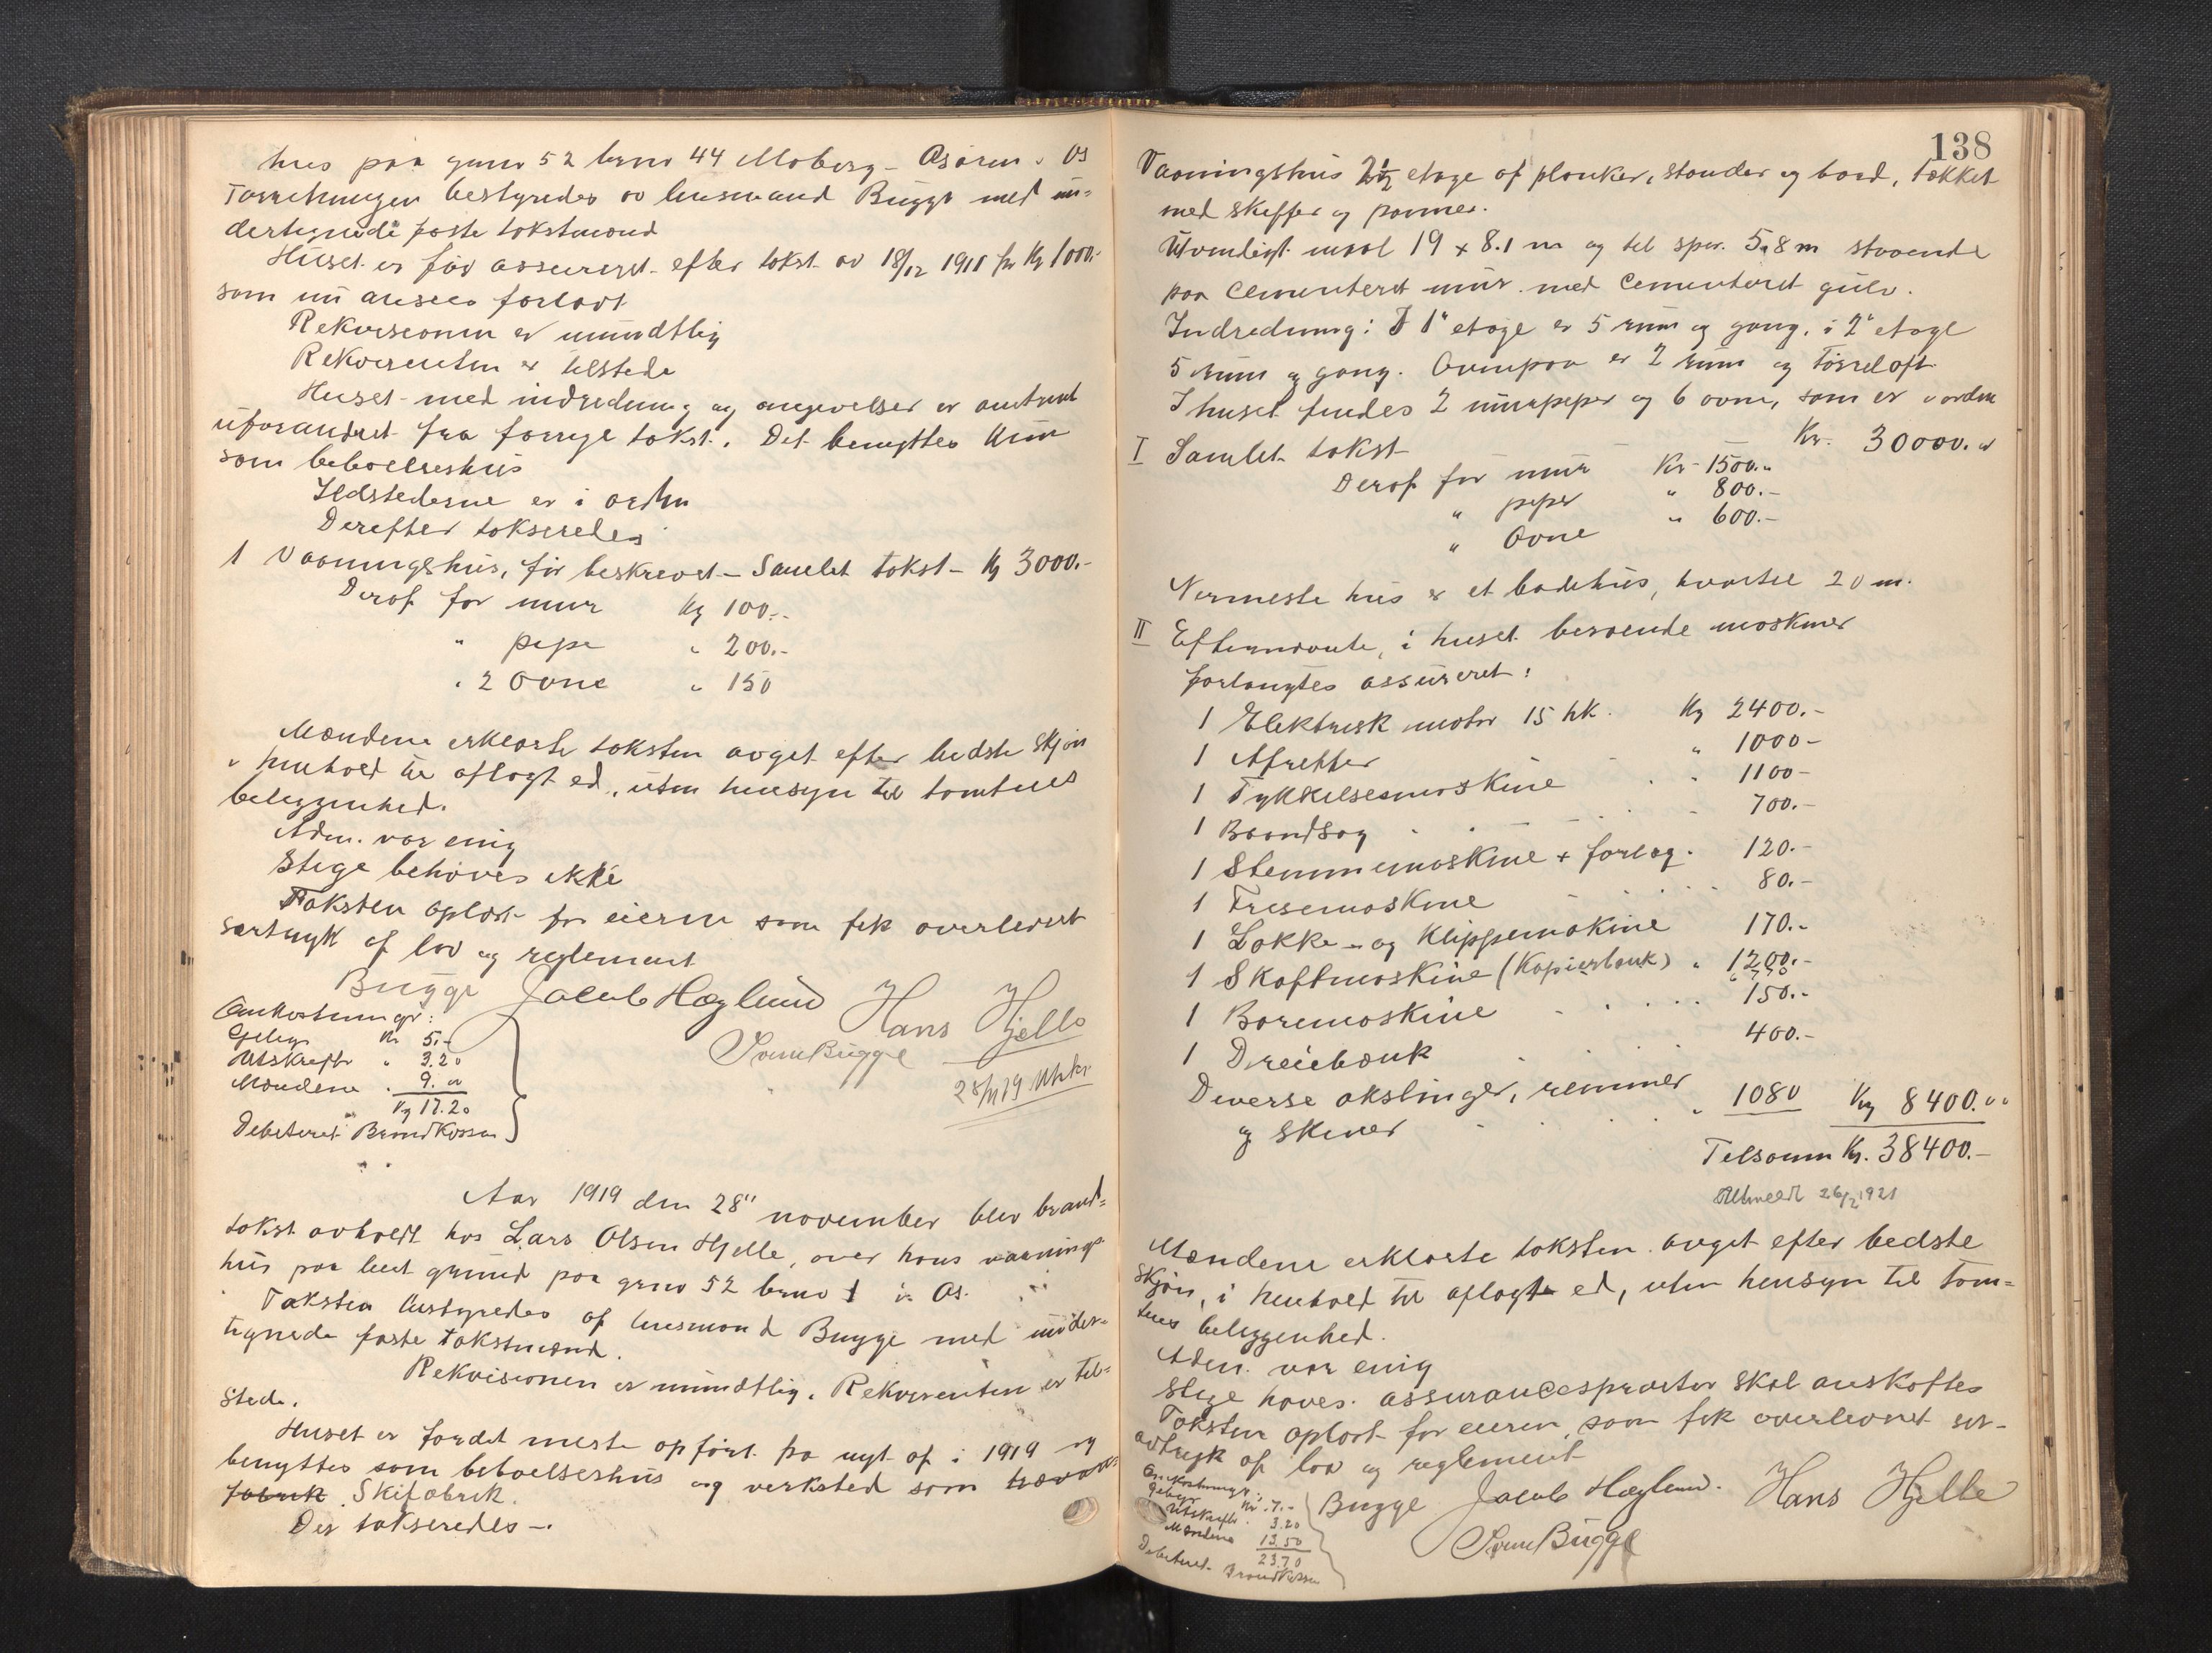 hus paa gnr 52 brno 44 Moberg - Osøren i Os
Forretningen bestyredes av lensmand Bugge med un-
dertegnede faste takstmænd
Huset er før assureret efter takst av 18/12 1911 for Kr 1000.-
som nu ansees for lavt
Rekvisionen er mundtlig
Rekvirenten er tilstede
Huset med indredning og angivelser er omtrent
uforandret fra forrige takst. Det benyttes kun
som beboelseshus
Ildstederne er i orden
Derefter takseredes
1 Vaaningshus, før beskrevet - Samlet takst - Kr 3000.-
Deraf for mur Kr 100.-
" pipe " 200.-
" 2 Ovne " 150
Mændene erklærte taksten avget efter bedste skjøn
i henhold til aflagt ed, uten hensyn til tomtens
beliggenhed.
Adm. var enig
Stige behøves ikke
Taksten oplæst for eieren som fik overlevert
særtryk af lov og reglement
Bugge Jacob Høglund Hans Hjelle
Omkostninger:
Gebyr Kr 5.-
Utskrifter " 3.20
Mændene " 9.00
Kr 17.20
Debiteret Brandkassen
28/11 19 Utskr.
Aar 1919 den 28" november blev brand-
takst avholdt hos Lars Olsen Hjelle, over hans vaanings-
hus paa leiet grund paa grno 52 brno 1 i Os.
Taksten bestyredes af lensmand Bugge med under-
tegnede faste takstmænd.
Rekvisionen er mundtlig. Rekvirenten er til-
stede.
Huset er fordet meste opført fra nyt af i 1919 og
benyttes som beboelseshus og verksted som trævare-
fabrik Skifabrik.
Der takseredes -.
138
Vaaningshus 2½ etage af planker, stender og bord, tækket
med skiffer og panner.
Utvendigt maal 19 x 8.1 m og til sper. 5.8 m staaende
paa Cementeret mur med Cementeret gulv.
Indredning: I 1" etage er 5 rum og gang, i 2" etage
5 rum og gang. Ovenpaa er 2 rum og Tørreloft.
I huset findes 2 murpiper og 6 ovne, som er i orden
I Samlet takst Kr. 30000.00
Deraf for mur Kr 1500.-
" piper " 800.-
" Ovne " 600.-
Nærmeste hus er et badehus, hvortil 20 m.
II Efternævnte, i huset beroende maskiner
forlangtes assureret:
1 Elektrisk motor 15 hk. Kr 2400.-
1 Afretter " 1000-
1 Tykkelsesmaskine " 1100-
1 Baandsag 700.-
1 Stemmemaskine + forlag. 120.-
1 Fresemaskine 80.-
1 Lokke- og Klippemakine 170.-
1 Skaftmaskine (Kopierbænk) " 1200.-
1 Boremaskine 150.-
1 Dreiebænk 400.-
Diverse akslinger, remmer
og skiver " 1080 Kr 8400.00
Tilsamm Kr. 38400.-
Utmeldt 26/2 1921
Mændene erklærte taksten avget efter bedste
Skjøn, i henhold til aflagt ed, uten hensyn til tom-
tens beliggenhed.
Adm. var enig
Stige haves. assurancesprøiter skal anskaffes
Taksten oplæst for eieren, som fik overleveret sær-
avtryk af lov og reglement
Omkostninger:
Gebyr Kr 7.-
Utskrifter 3.20
Mændene 13.50
23.70
Debiteret Brandkassen
Bugge Jacob Høglund. Hans Hjelle